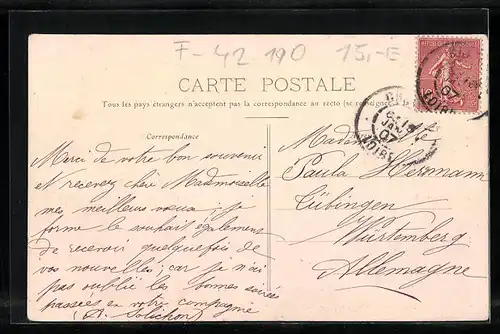 F-42 190 15,-E
CARTE POSTALE
Tous les pays étrangers n'acceptent pas la correspondance au recto (se renseigner
Correspondance
Merci de votre bon souvenir
et recevez chère Mademoiselle
mes meilleurs vœux ; je
forme le souhait également
de recevoir quelquefois de
vos nouvelles ; car je n'ai
pas oublié les bonnes soirées
passées en votre compagnie
Paula Hermann
Tübingen
Würtemberg
Allemagne
07
LOIRE